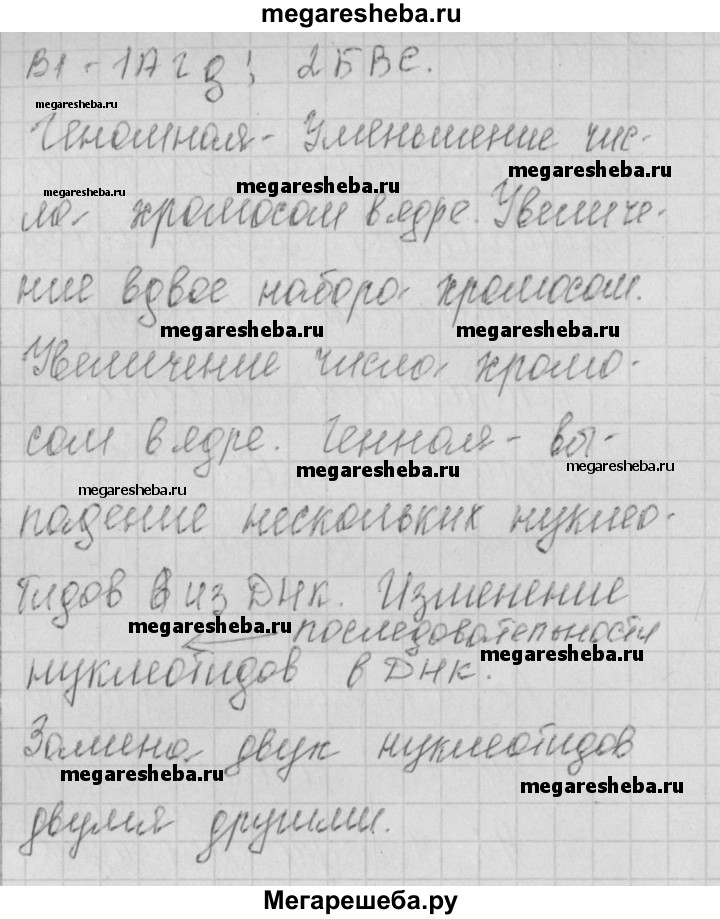 megaresheba.ru
В1 - 1А г д; 2 Б В Е.
megaresheba.ru
Геномная - Уменьшение чис-
megaresheba.ru
megaresheba.ru
megaresheba.ru
ла хромосом в ядре. Увеличе-
ние вдвое набора хромосом.
megaresheba.ru
megaresheba.ru
Увеличение числа хромо-
сом в ядре. Генная - вы-
megaresheba.ru
megaresheba.ru
megaresheba.ru
падение нескольких нуклео-
тидов из ДНК. Изменение
megaresheba.ru
последовательности
megaresheba.ru
нуклеотидов в ДНК.
Замена двух нуклеотидов
megaresheba.ru
megaresheba.ru
двумя другими.
Мегарешеба.ру